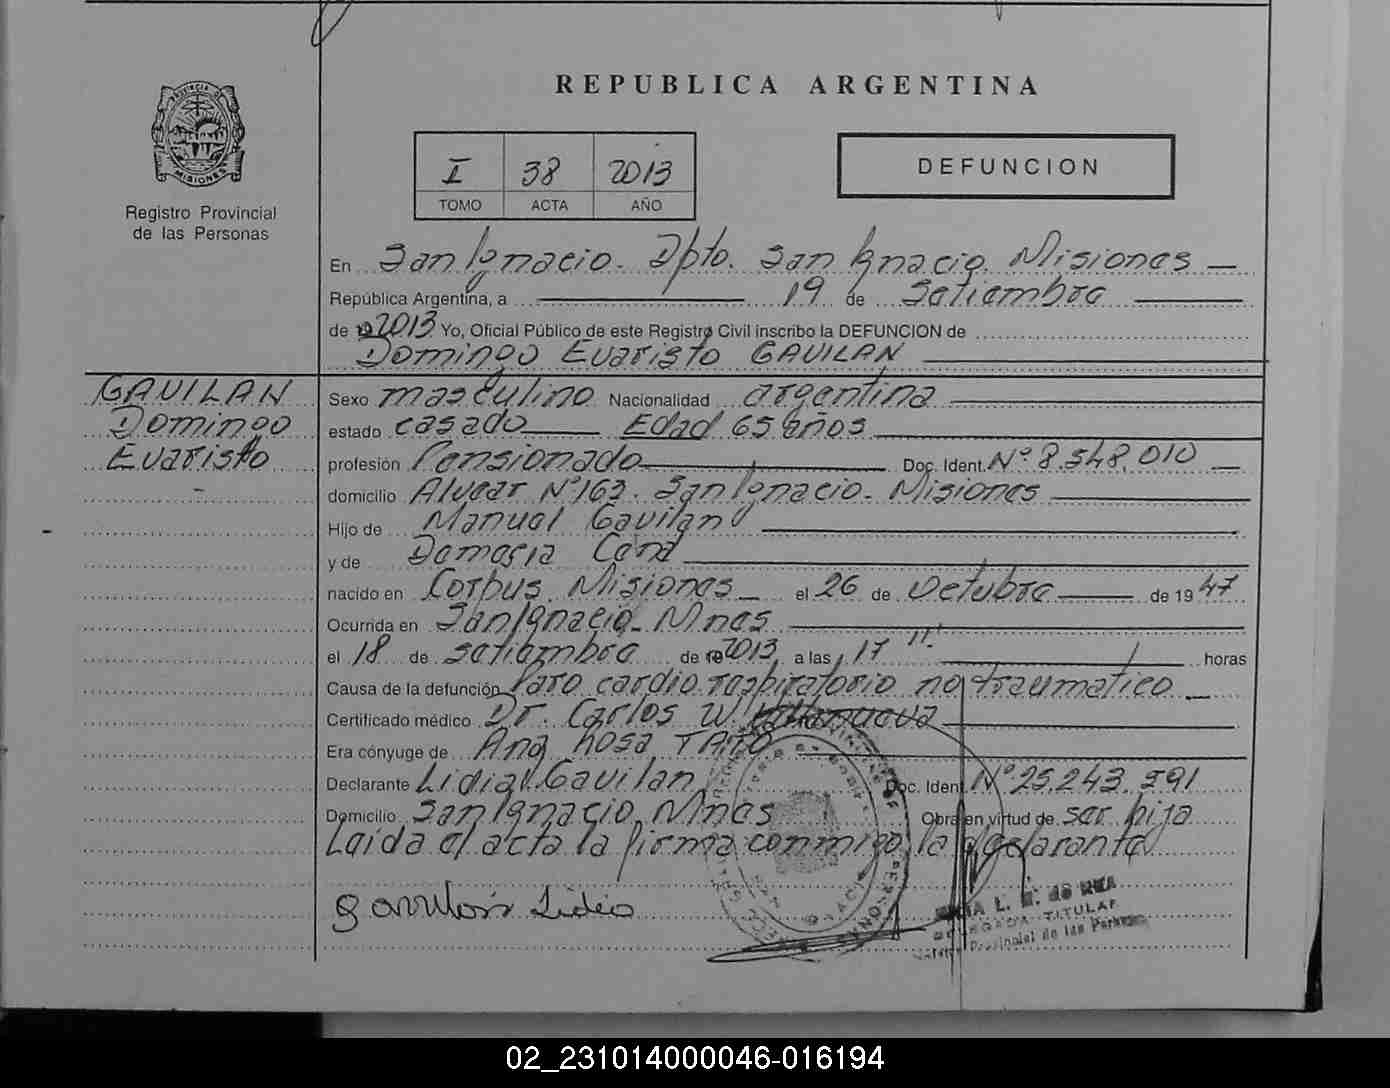 REPUBLICA ARGENTINA
PROVINCIA DE
MISIONES
Registro Provincial
de las Personas
I 38 2013
TOMO ACTA AÑO
DEFUNCION
En San Ignacio. Dpto. San Ignacio. Misiones
República Argentina, a 19 de Setiembre
de 2013 Yo, Oficial Público de este Registro Civil inscribo la DEFUNCION de
Domingo Evaristo GAVILAN
GAVILAN
Domingo
Evaristo
Sexo masculino Nacionalidad argentina
estado casado Edad 65 años
profesión Pensionado Doc. Ident. Nº 8.548.010
domicilio Alvear Nº 163. San Ignacio. Misiones
Hijo de Manuel Gavilan
y de Damasia
nacido en Corpus. Misiones el 26 de octubre de 1947
Ocurrida en San Ignacio. Mnes
el 18 de setiembre de 2013 a las 17 horas
Causa de la defunción Paro cardio respiratorio no traumatico
Certificado médico Dr. Carlos W. Villanueva
Era cónyuge de Ana Rosa
Declarante Lidia Gavilan Doc. Ident. Nº 25.243.591
Domicilio San Ignacio. Mnes Obra en virtud de ser hija
Leida el acta la firma conmigo la declarante
Gavilan Lidia
L. E. de
DELEGADA TITULAR
Provincial de las Personas
02_231014000046-016194